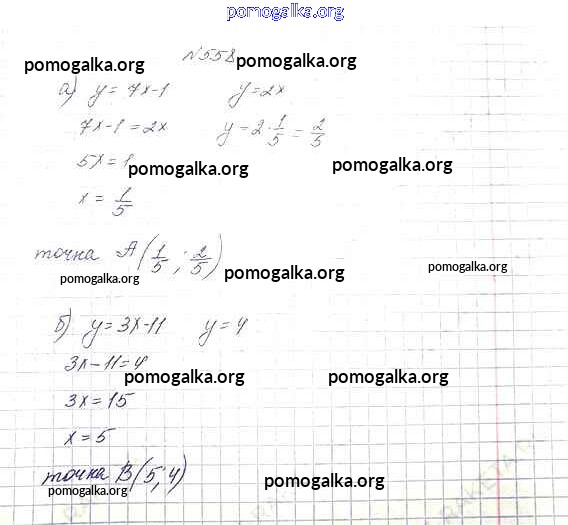 pomogalka.org
№558
pomogalka.org pomogalka.org
а) y = 7x-1 y=2x
7x-1=2x y=2·1/5 = 2/5
5x=1
pomogalka.org pomogalka.org
x = 1/5
точка A(1/5; 2/5)
pomogalka.org pomogalka.org pomogalka.org
б) y=3x-11 y=4
3x-11=4
pomogalka.org pomogalka.org
3x=15
x=5
точка B(5;4)
pomogalka.org pomogalka.org